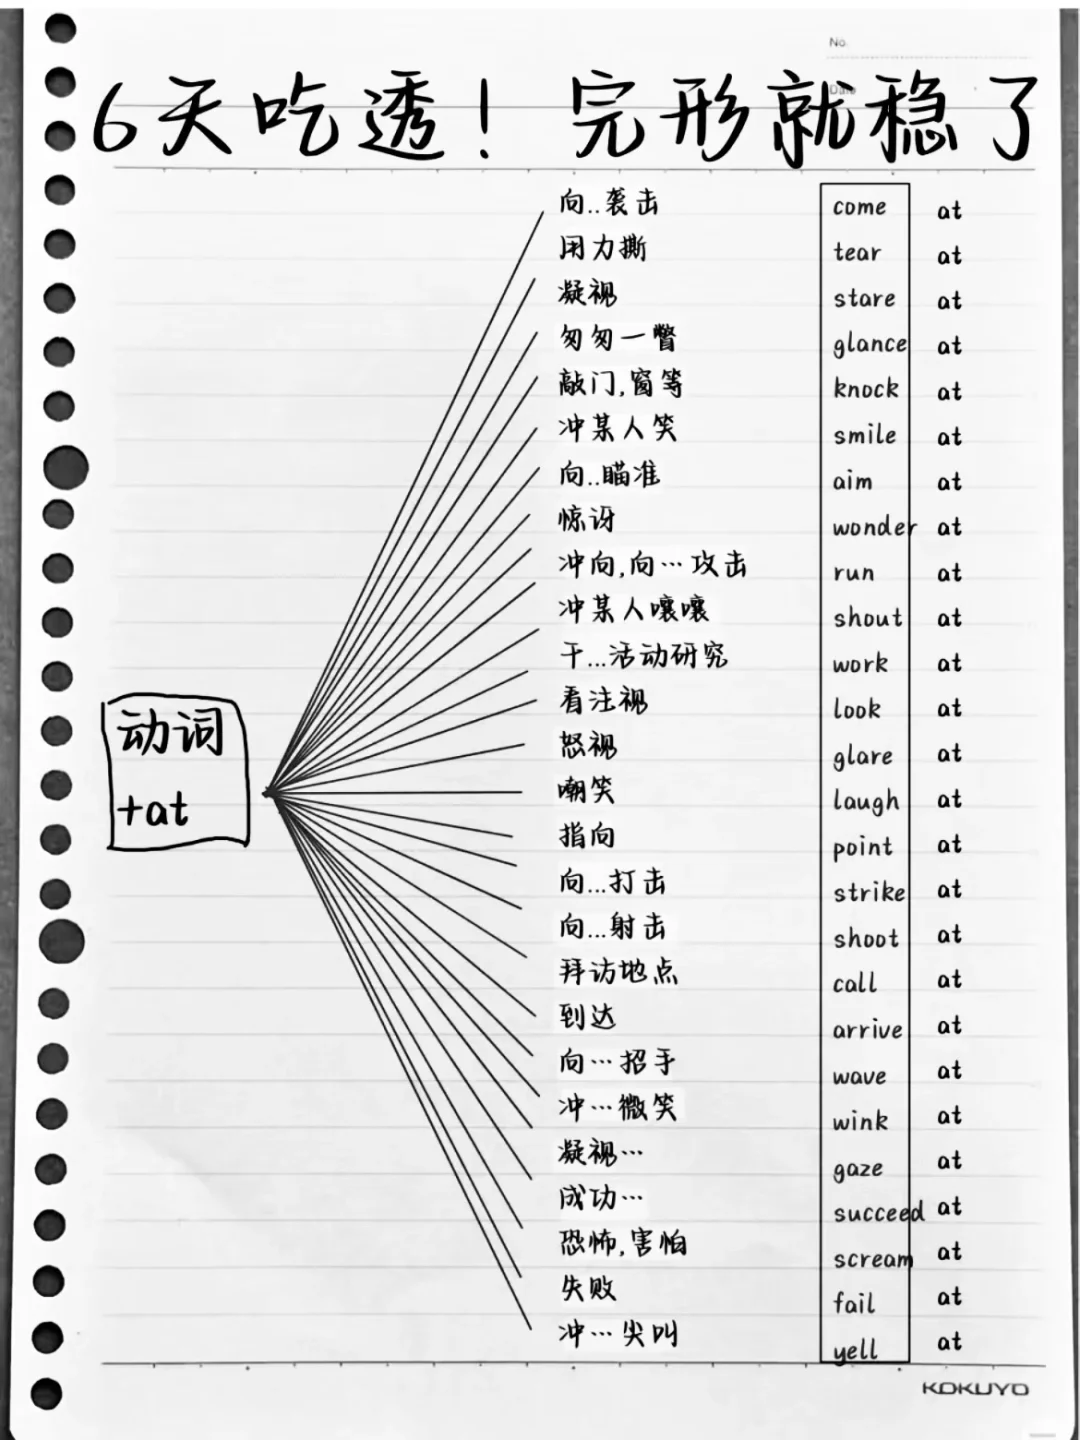 No.
Date
6天吃透！完形就稳了
动词
+at
向..袭击 come at
用力撕 tear at
凝视 stare at
匆匆一瞥 glance at
敲门,窗等 knock at
冲某人笑 smile at
向..瞄准 aim at
惊讶 wonder at
冲向,向…攻击 run at
冲某人嚷嚷 shout at
干...活动研究 work at
看注视 look at
怒视 glare at
嘲笑 laugh at
指向 point at
向...打击 strike at
向...射击 shoot at
拜访地点 call at
到达 arrive at
向…招手 wave at
冲…微笑 wink at
凝视… gaze at
成功… succeed at
恐怖,害怕 scream at
失败 fail at
冲…尖叫 yell at
KOKUYO